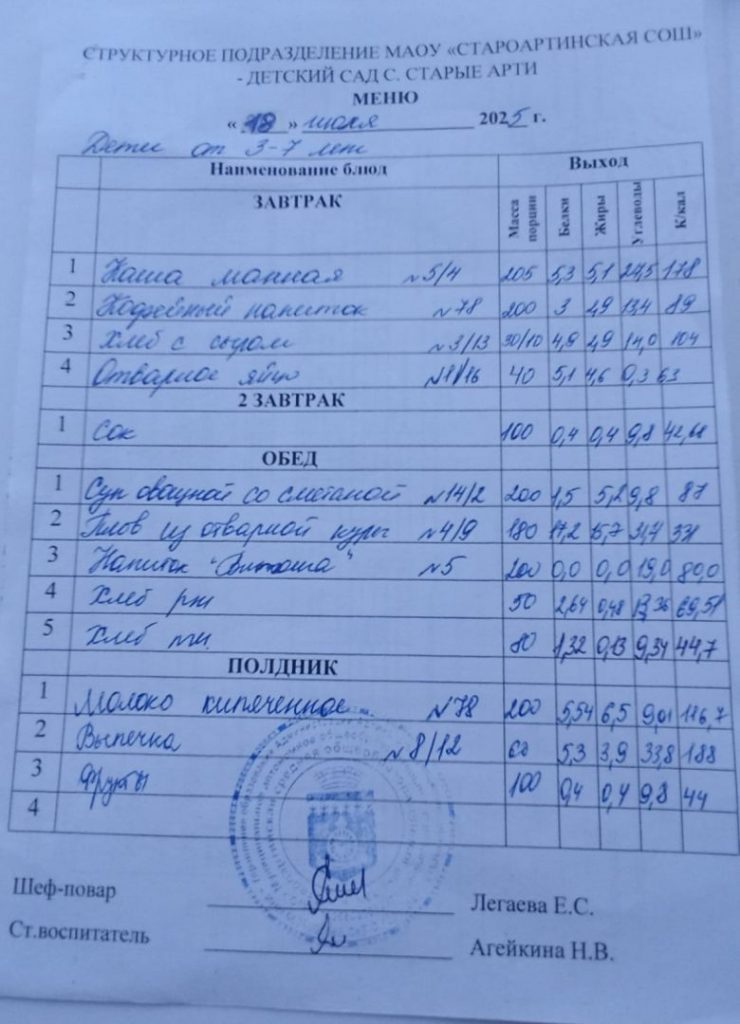 СТРУКТУРНОЕ ПОДРАЗДЕЛЕНИЕ МАОУ «СТАРОАРТИНСКАЯ СОШ»
- ДЕТСКИЙ САД С. СТАРЫЕ АРТИ
МЕНЮ
« 18 » июля 2025 г.
Дети от 3-7 лет
Наименование блюд Выход
ЗАВТРАК Масса порции Белки Жиры Углеводы К/кал
1 Каша манная №5/4 205 5,3 5,1 178
2 Кофейный напиток №78 200 3 2,9 13,4 89
3 Хлеб с сыром №3/13 30/10 4,9 4,9 14,0 104
4 Отварное яйцо 40 5,1 4,6 0,3 63
2 ЗАВТРАК
1 Сок 100 0,4 0,4 9,8
ОБЕД
1 Суп овощной со сметаной №14/2 200 1,5 5,2 9,8 87
2 Плов из отварной куры №4/9 180 17,2 15,7
3 Напиток "Витоша" №5 200 0,0 0,0 19,0 80,0
4 Хлеб рж 50 2,64 0,48
5 Хлеб пш. 1,32 0,13 9,34 44,7
ПОЛДНИК
1 Молоко кипяченное №78 200 5,54 6,5 9,01 116,7
2 Выпечка №8/12 60 5,3 3,9 33,8 188
3 Фрукты 100 0,4 0,4 9,8 44
4
Шеф-повар Легаева Е.С.
Ст.воспитатель Агейкина Н.В.